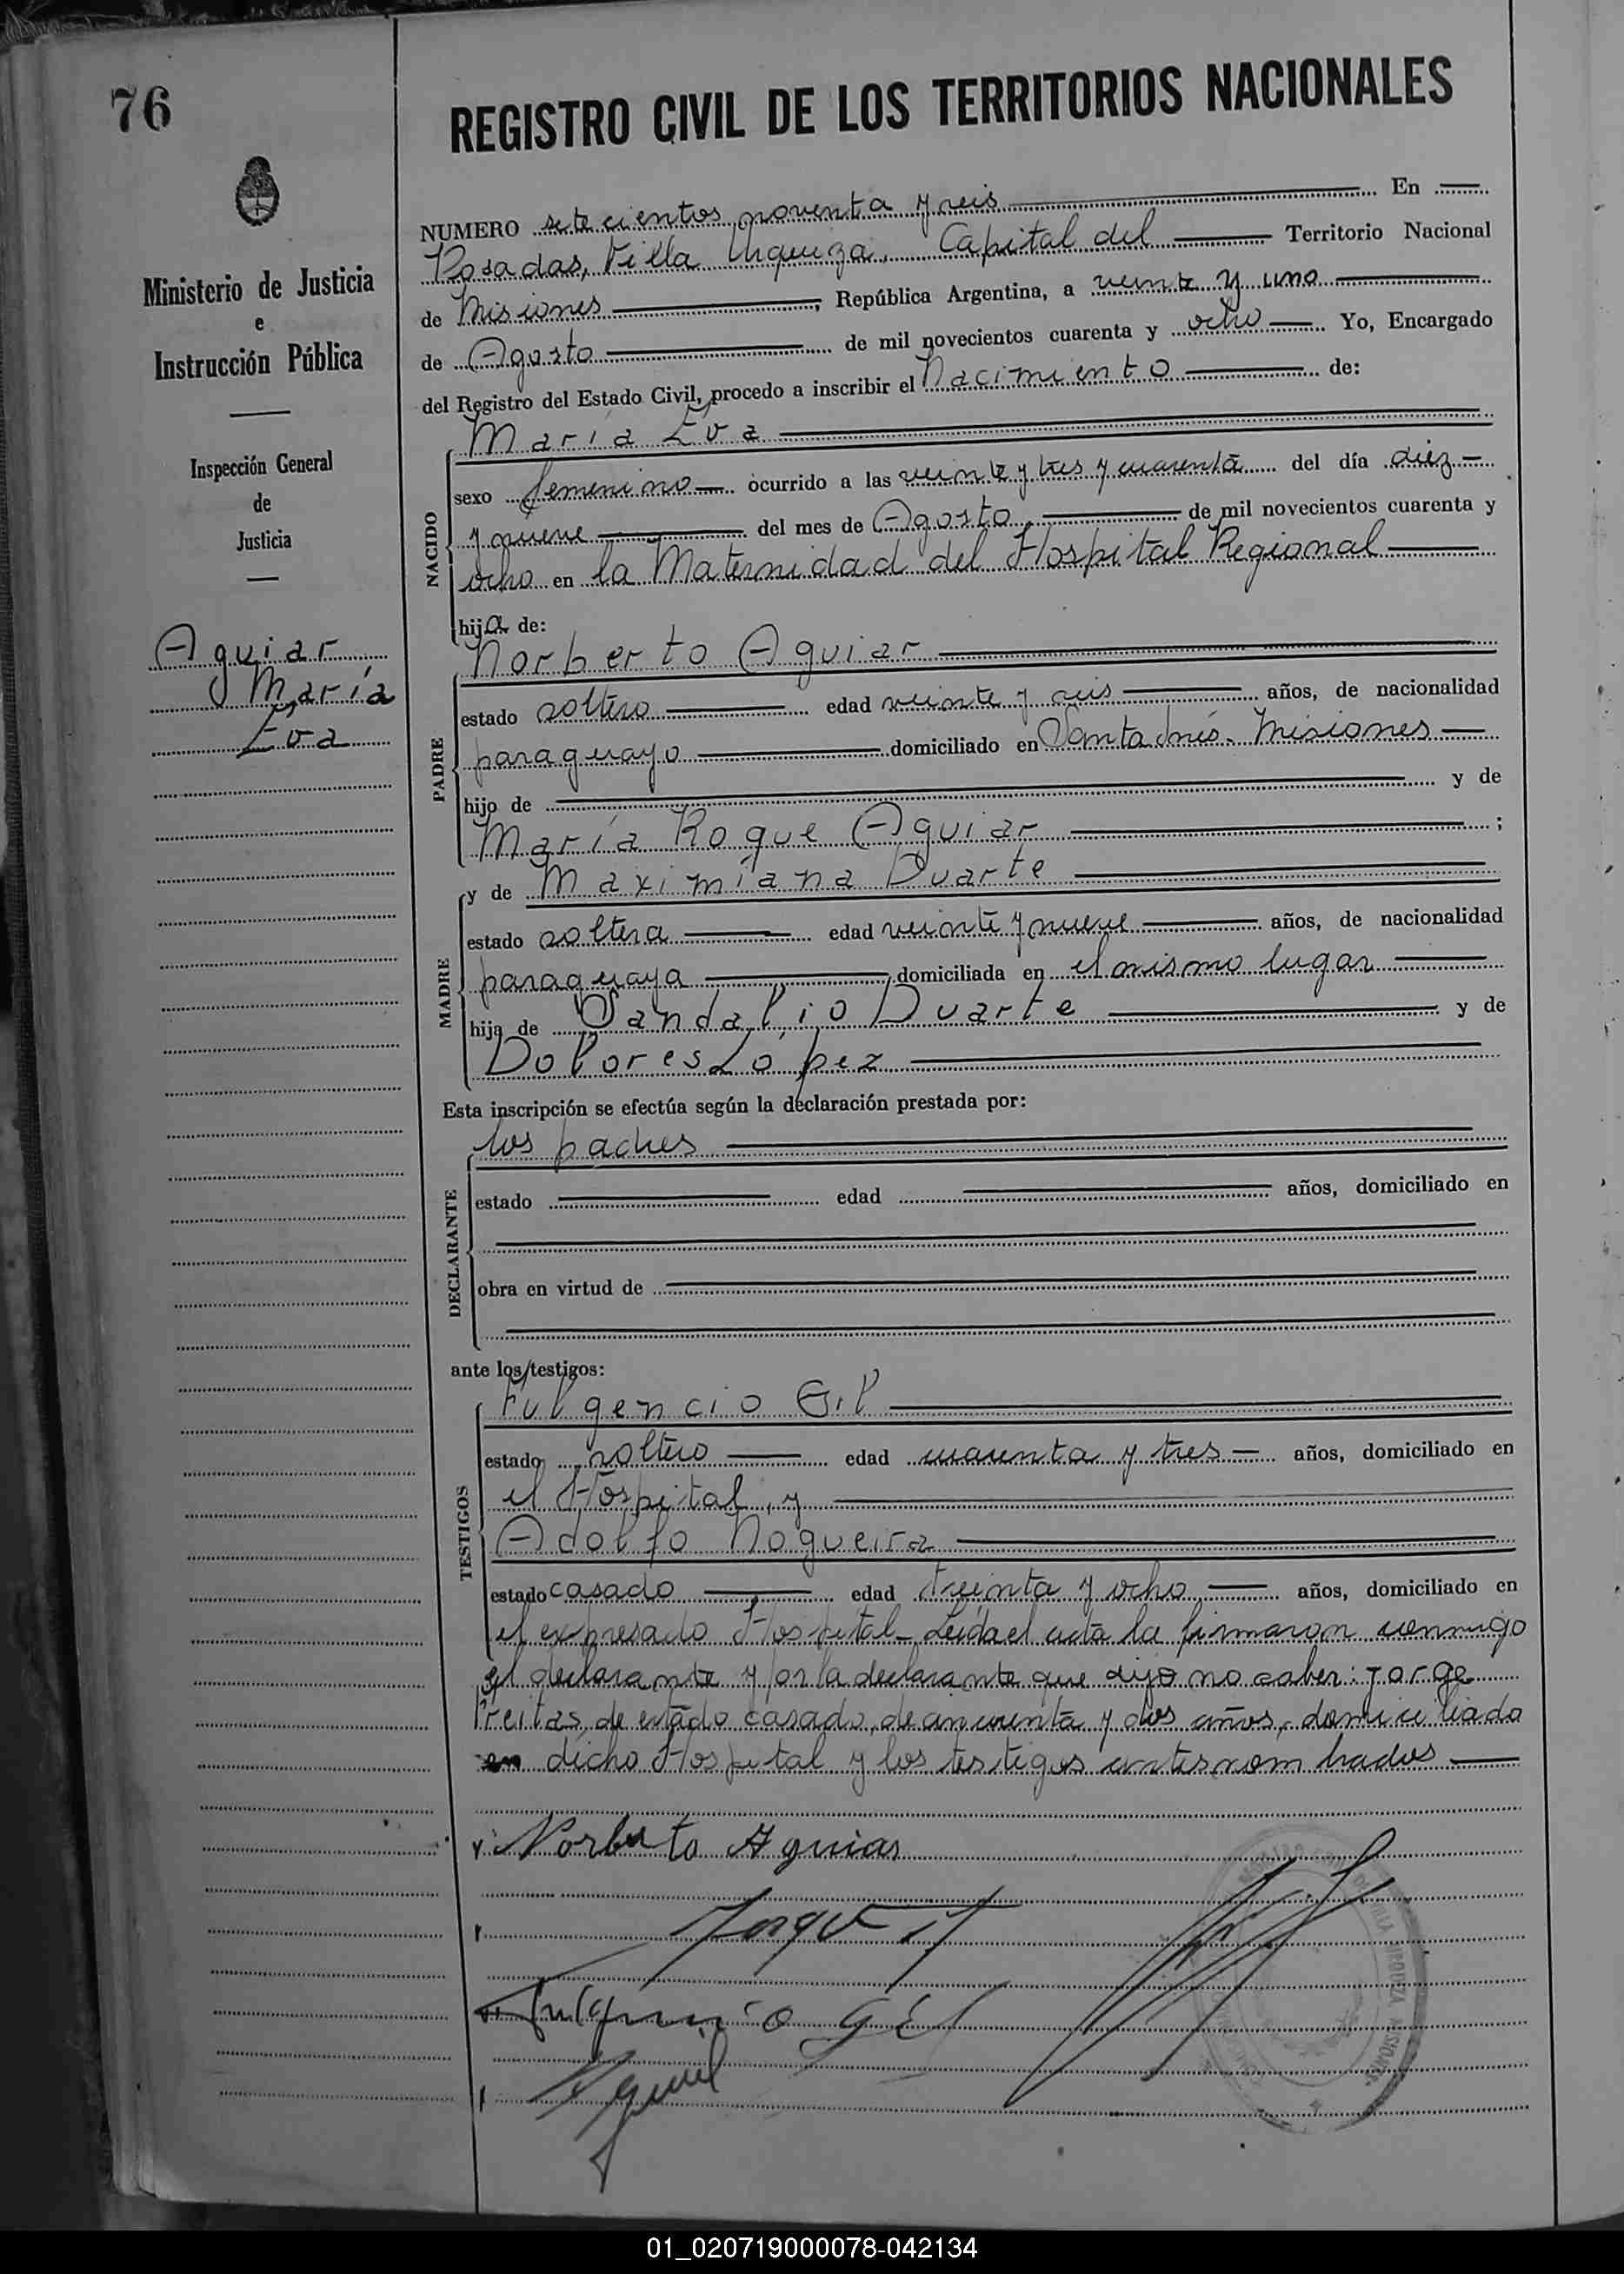 76
REGISTRO CIVIL DE LOS TERRITORIOS NACIONALES
Ministerio de Justicia
e
Instrucción Pública
Inspección General
de
Justicia
Aguiar
María
Eva
NUMERO setecientos noventa y seis En
Posadas, Villa Urquiza, Capital del Territorio Nacional
de Misiones, República Argentina, a veinte y uno
de Agosto de mil novecientos cuarenta y ocho Yo, Encargado
del Registro del Estado Civil, procedo a inscribir el Nacimiento de:
María Eva
NACIDO
sexo femenino ocurrido a las veinte y tres y cuarenta del día diez
y nueve del mes de Agosto de mil novecientos cuarenta y
ocho en la Maternidad del Hospital Regional
hija de:
Norberto Aguiar
PADRE
estado soltero edad veinte y seis años, de nacionalidad
paraguayo domiciliado en Santa Inés. Misiones
hijo de y de
María Roque Aguiar ;
y de Maximiana Duarte
MADRE
estado soltera edad veinte y nueve años, de nacionalidad
paraguaya domiciliada en el mismo lugar
hija de Sandalio Duarte y de
Dolores López
Esta inscripción se efectúa según la declaración prestada por:
los padres
DECLARANTE
estado edad años, domiciliado en
obra en virtud de
ante los testigos:
Fulgencio Gil
TESTIGOS
estado soltero edad cuarenta y tres años, domiciliado en
el Hospital, y
Adolfo Nogueira
estado casado edad treinta y ocho años, domiciliado en
el expresado Hospital. Leída el acta la firmaron conmigo
el declarante y por la declarante que dijo no saber: Jorge
Freitas, de estado casado, de cincuenta y dos años, domiciliado
en dicho Hospital y los testigos antesnombrados
Norberto Aguiar
Fulgencio Gil
01_020719000078-042134